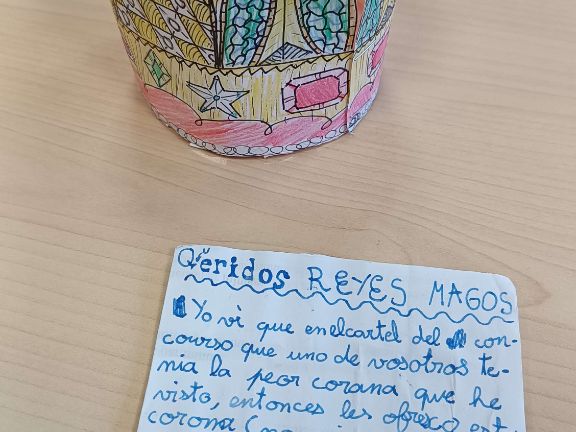 Queridos REYES MAGOS
Yo vi que enelcartel del con-
courso que uno de vosotros te-
nia la peor corana que he
visto, entonces les ofresco est
corona